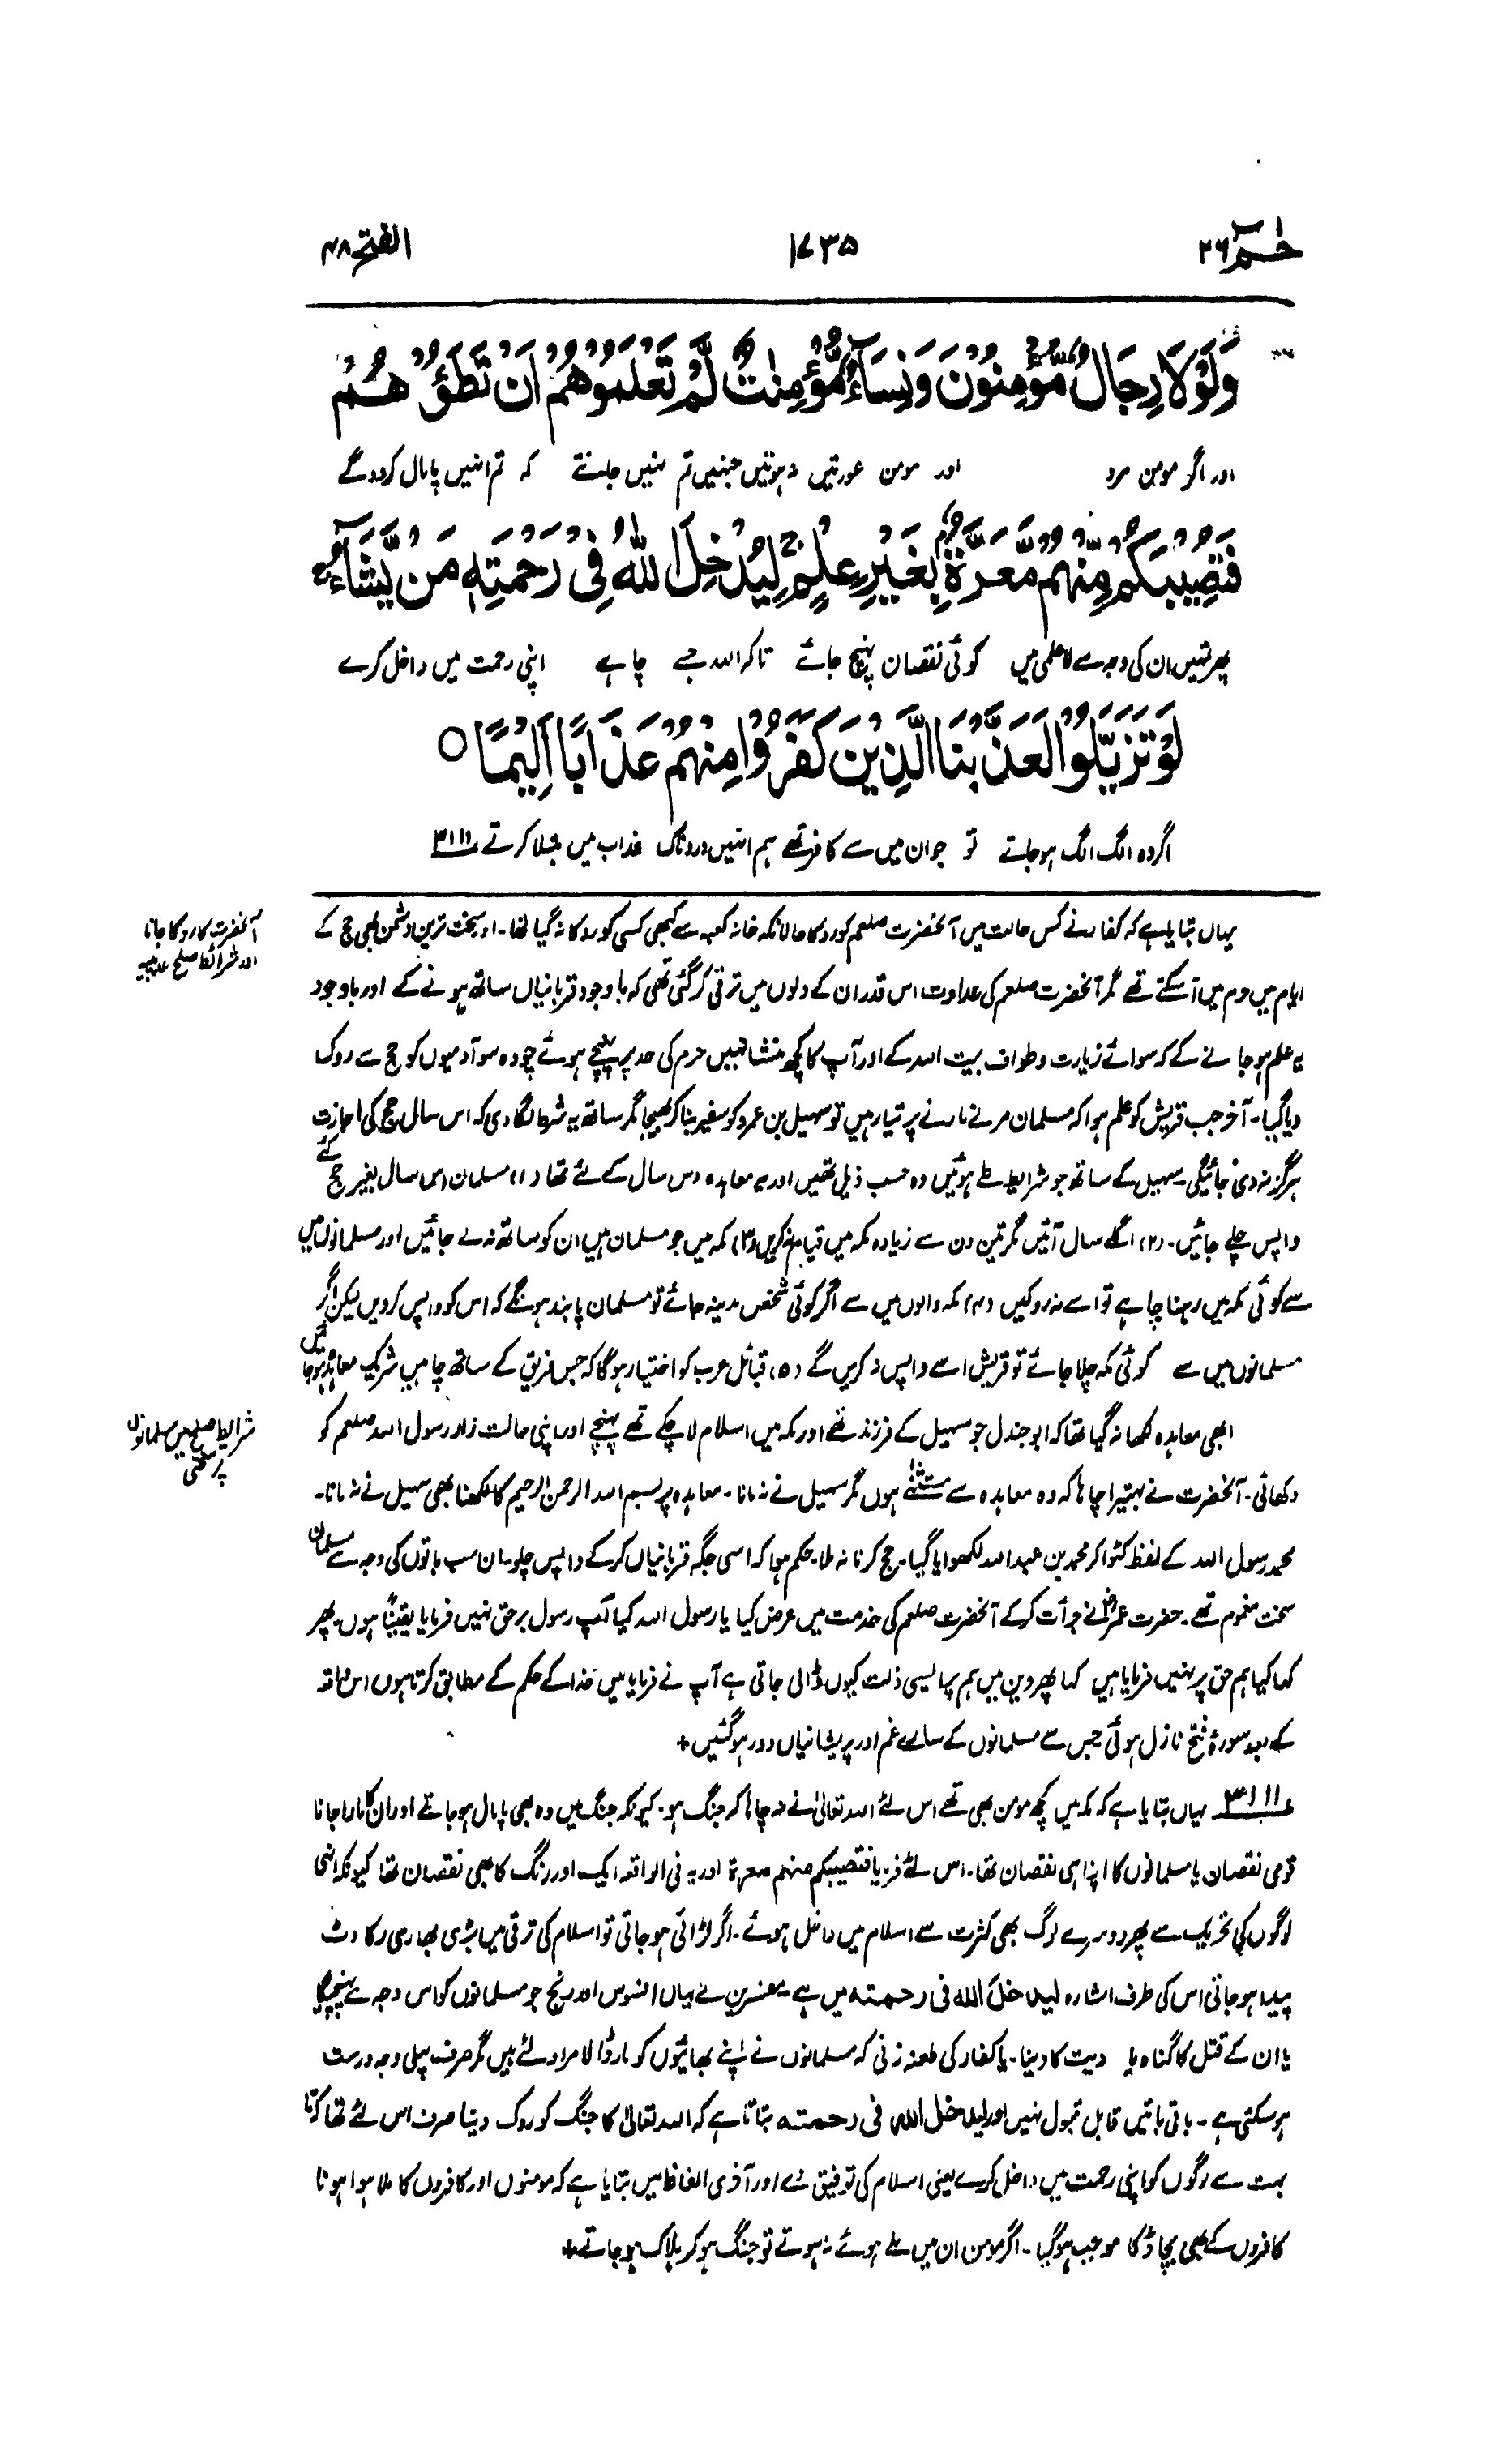 حٰمٓ ۲۶
۱۷۳۵
الفتح ۴۸
وَلَوْلَا رِجَالٌ مُّؤْمِنُوْنَ وَنِسَآءٌ مُّؤْمِنٰتٌ لَّمْ تَعْلَمُوْهُمْ اَنْ تَطَـُٔوْهُمْ
اور اگر مومن مرد اور مومن عورتیں نہ ہوتیں جنہیں تم نہیں جانتے کہ تم انہیں پامال کردوگے
فَتُصِيْبَكُمْ مِّنْهُمْ مَّعَرَّةٌۢ بِغَيْرِ عِلْمٍ ۚ لِيُدْخِلَ اللّٰهُ فِيْ رَحْمَتِهٖ مَنْ يَّشَآءُ ۚ
پھر تمہیں ان کی وجہ سے لاعلمی میں کوئی نقصان پہنچ جائے تاکہ اللہ جسے چاہے اپنی رحمت میں داخل کرے
لَوْ تَزَيَّلُوْا لَعَذَّبْنَا الَّذِيْنَ كَفَرُوْا مِنْهُمْ عَذَابًا اَلِيْمًا ○
اگر وہ الگ الگ ہوجاتے تو جو ان میں سے کافر تھے ہم انہیں دردناک عذاب میں مبتلا کرتے ۳۱۱۱
آنحضرت کا روکا جانا
اور شرائط صلح حدیبیہ
یہاں بتایا ہے کہ کفار نے کس حالت میں آنحضرت صلعم کو روکا حالانکہ خانہ کعبہ سے کبھی کسی کو روکا نہ گیا تھا۔ اور سخت ترین دشمن بھی حج کے
ایام میں حرم میں آسکتے تھے مگر آنحضرت صلعم کی عداوت اس قدر ان کے دلوں میں ترقی کرگئی تھی کہ باوجود قربانیاں ساتھ ہونے کے اور باوجود
یہ علم ہوجانے کے کہ سوائے زیارت وطواف بیت اللہ کے اور آپ کا کچھ منشا نہیں حرم کی حد پر پہنچے ہوئے چودہ سو آدمیوں کو حج سے روک
دیا گیا۔ آخر جب قریش کو علم ہوا کہ مسلمان مرنے مارنے پر تیار ہیں تو سہیل بن عمرو کو سفیر بنا کر بھیجا مگر ساتھ یہ شرط لگا دی کہ اس سال حج کی اجازت
ہرگز نہ دی جائیگی۔ سہیل کے ساتھ جو شرایط طے ہوئیں وہ حسب ذیل تھیں اور یہ معاہدہ دس سال کے لئے تھا (۱) مسلمان اس سال بغیر حج کئے
واپس چلے جائیں۔ (۲) اگلے سال آئیں مگر تین دن سے زیادہ مکہ میں قیام نہ کریں (۳) مکہ میں جو مسلمان ہیں ان کو ساتھ نہ لے جائیں اور مسلمانوں میں
سے کوئی مکہ میں رہنا چاہے تو اسے نہ روکیں (۴) مکہ والوں میں سے اگر کوئی شخص مدینہ جائے تو مسلمان پابند ہونگے کہ اس کو واپس کردیں لیکن اگر
مسلمانوں میں سے کوئی مکہ چلا جائے تو قریش اسے واپس نہ کریں گے (۵) قبائل عرب کو اختیار ہوگا کہ جس فریق کے ساتھ چاہیں شریک معاہدہ ہوجائیں
شرایط صلح میں مسلمانوں
پر سختی
ابھی معاہدہ لکھا نہ گیا تھا کہ ابو جندل جو سہیل کے فرزند تھے اور مکہ میں اسلام لا چکے تھے پہنچے اور اپنی حالت زار رسول اللہ صلعم کو
دکھائی۔ آنحضرت نے بہتیرا چاہا کہ وہ معاہدہ سے مستثنیٰ ہوں مگر سہیل نے نہ مانا۔ معاہدہ پر بسم اللہ الرحمن الرحیم کا لکھنا بھی سہیل نے نہ مانا۔
محمد رسول اللہ کے لفظ کٹوا کر محمد بن عبداللہ لکھوایا گیا۔ حج کرنا نہ ملا۔ حکم ہوا کہ اسی جگہ قربانیاں کرکے واپس چلو۔ ان سب باتوں کی وجہ سے مسلمان
سخت مغموم تھے۔ حضرت عمرؓ نے جرأت کرکے آنحضرت صلعم کی خدمت میں عرض کیا یا رسول اللہ کیا آپ رسول برحق نہیں فرمایا یقیناً ہوں۔ پھر
کہا کیا ہم حق پر نہیں فرمایا ہیں کہا پھر دین میں ہم پر ایسی ذلت کیوں ڈالی جاتی ہے آپ نے فرمایا میں خدا کے حکم کے مطابق کرتا ہوں اس واقعہ
کے بعد سورۂ فتح نازل ہوئی جس سے مسلمانوں کے سارے غم اور پریشانیاں دور ہوگئیں +
۳۱۱۱ یہاں بتایا ہے کہ مکہ میں کچھ مومن بھی تھے اس لئے اللہ تعالیٰ نے نہ چاہا کہ جنگ ہو۔ کیونکہ جنگ میں وہ بھی پامال ہوجاتے اور ان کا مارا جانا
قومی نقصان یا مسلمانوں کا اپنا ہی نقصان تھا۔ اس لئے فرمایا فتصیبکم منهم معرة اور یہ فی الواقعہ ایک اور رنگ کا بھی نقصان تھا کیونکہ انہی
لوگوں کی تحریک سے پھر دوسرے لوگ بھی کثرت سے اسلام میں داخل ہوئے۔ اگر لڑائی ہوجاتی تو اسلام کی ترقی میں بڑی بھاری رکاوٹ
پیدا ہوجاتی اس کی طرف اشارہ لیدخل الله فی رحمته میں ہے۔ مفسرین نے یہاں افسوس اور رنج جو مسلمانوں کو اس وجہ سے پہنچیگا
یا ان کے قتل کا گناہ یا دیت کا دینا۔ یا کفار کی طعنہ زنی کہ مسلمانوں نے اپنے بھائیوں کو مار ڈالا مراد لئے ہیں مگر صرف پہلی وجہ درست
ہوسکتی ہے۔ باقی باتیں قابل قبول نہیں اور لیدخل الله فی رحمته بتاتا ہے کہ اللہ تعالیٰ کا جنگ کو روک دینا صرف اس لئے تھا کہ تا
بہت سے لوگوں کو اپنی رحمت میں داخل کرے یعنی اسلام کی توفیق دے اور آخری الفاظ میں بتایا ہے کہ مومنوں اور کافروں کا ملا ہوا ہونا
کافروں کے بھی بچاؤ کا موجب ہوگیا۔ اگر مومن ان میں ملے ہوئے نہ ہوتے تو جنگ ہوکر ہلاک ہوجاتے +